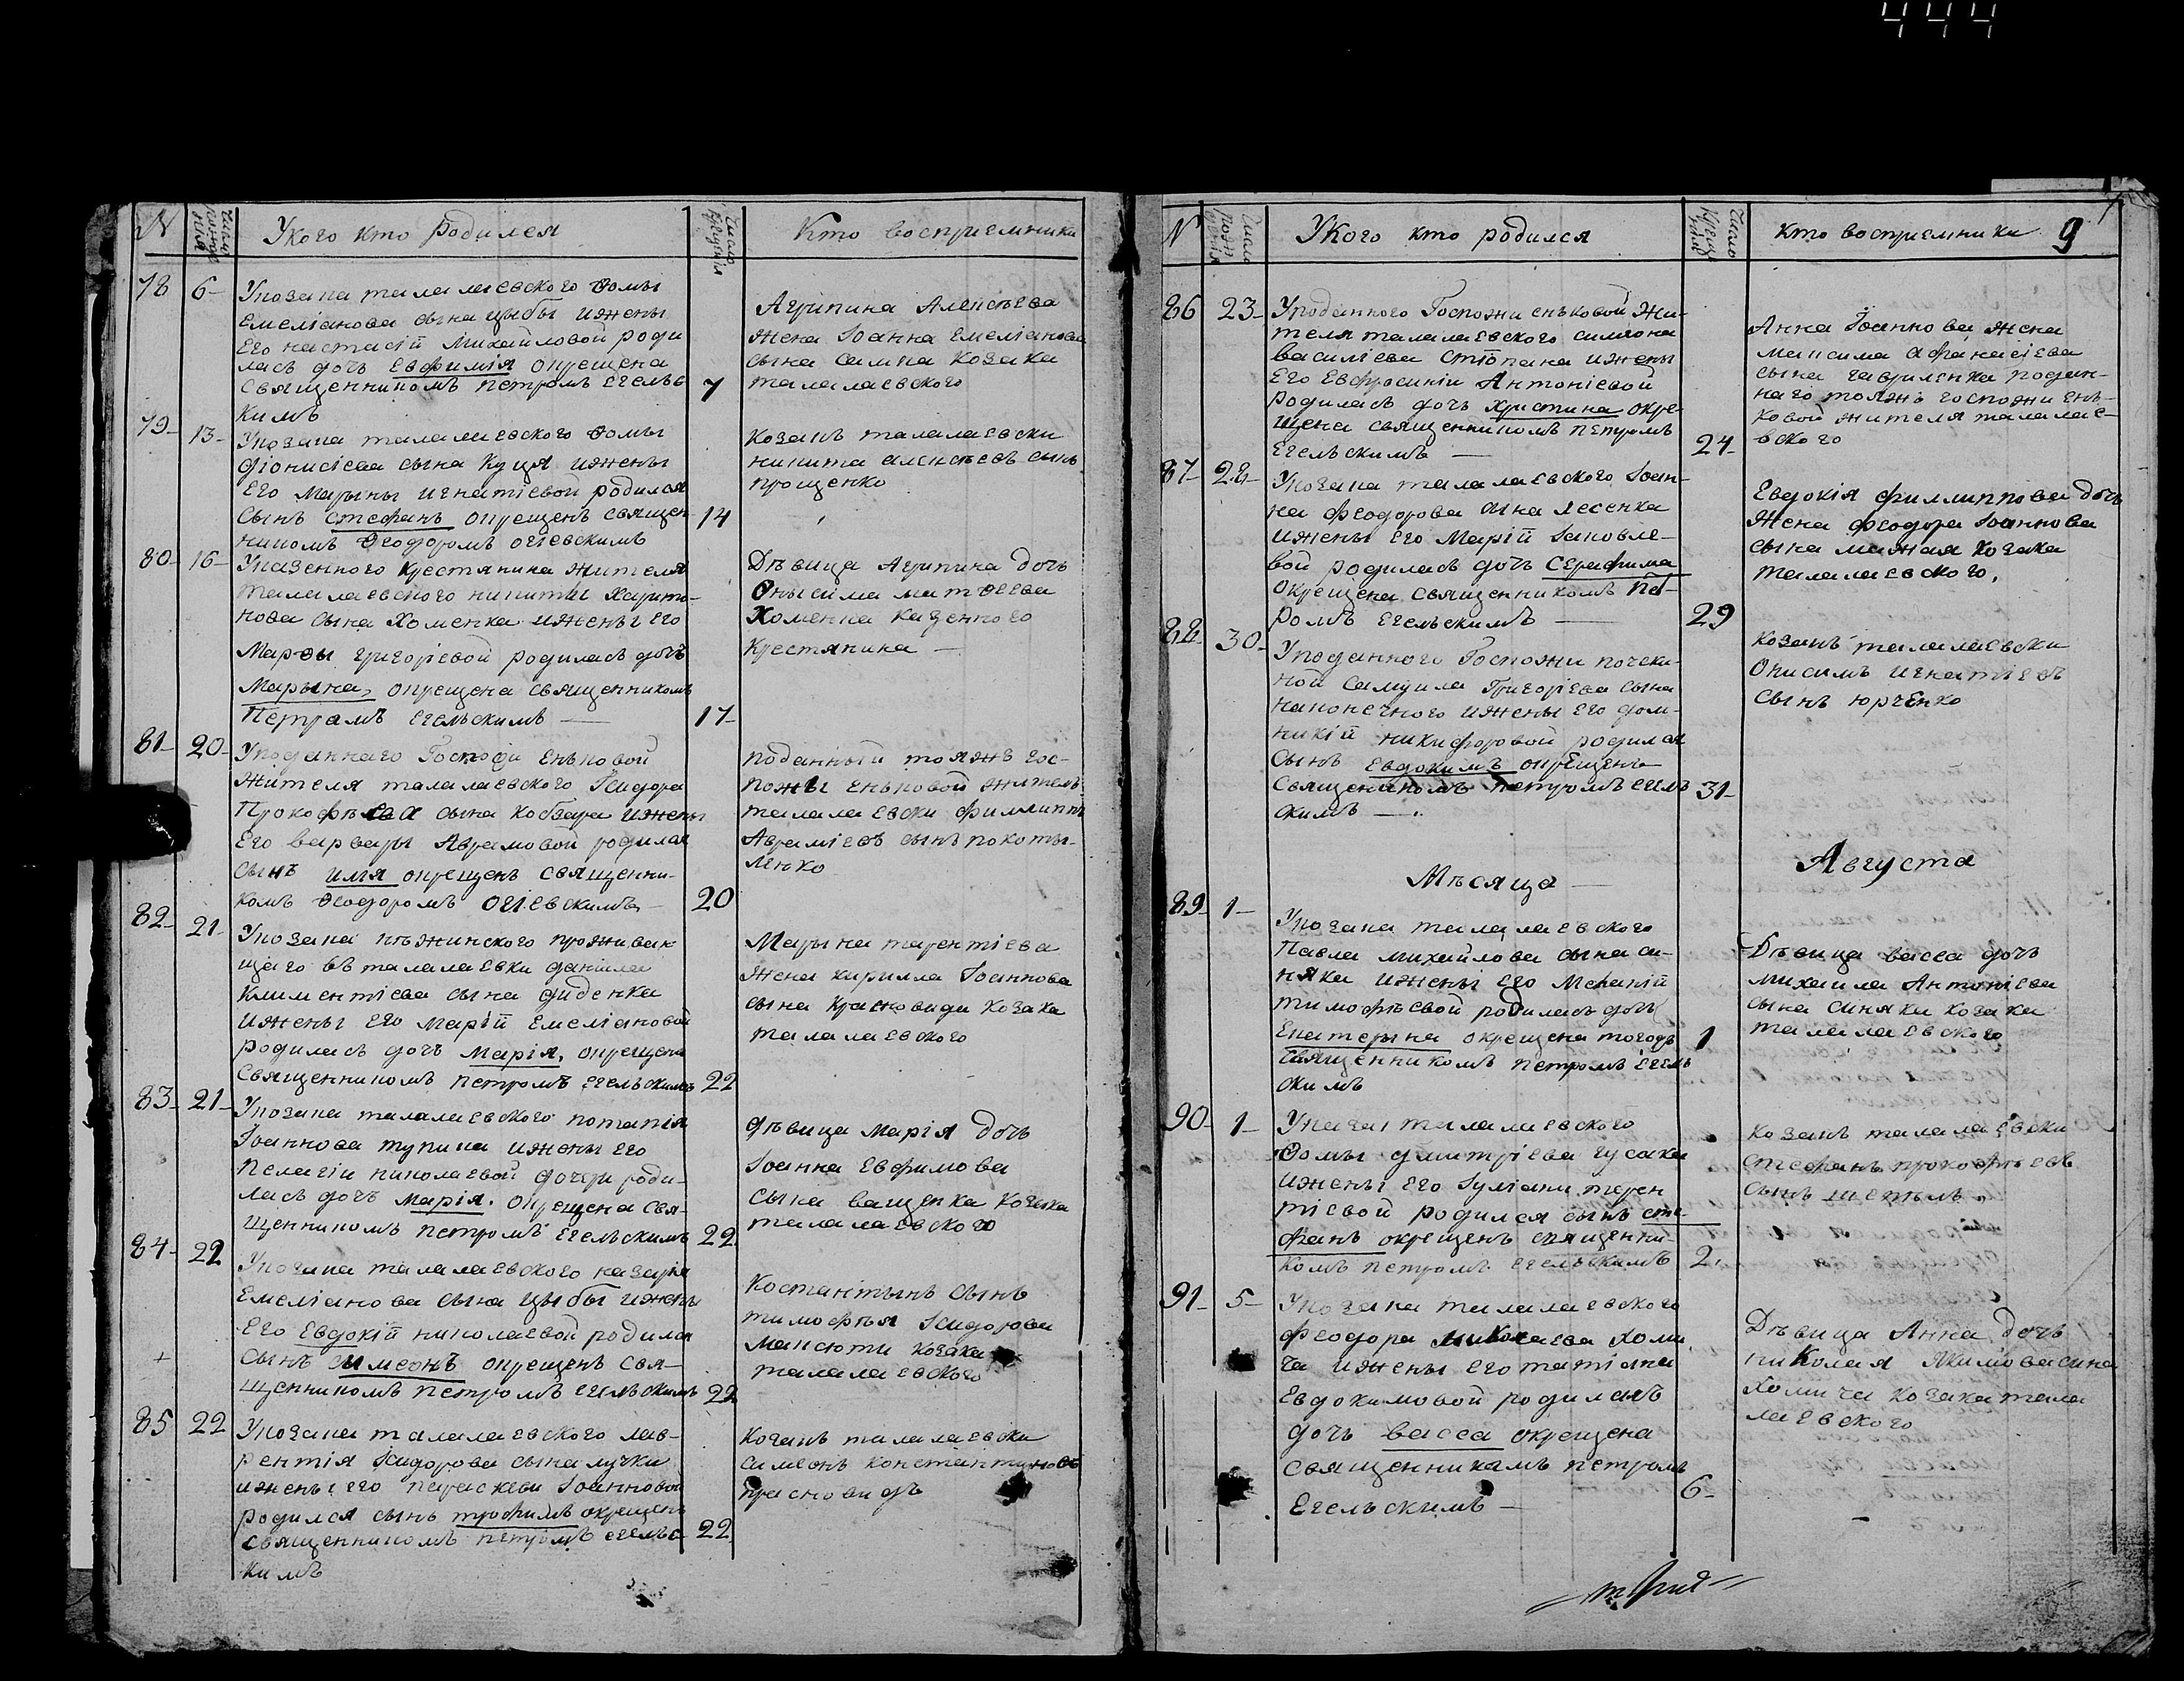 444
N
Число рожденія
У кого кто родился
Число крещенія
Кто восприемники
78
6
У козака талалаевского Ѳомы
Емеліанова сына Цыбы и жены
Его настасіи Михайловой роди
лась дочь Евфимія окрещена
священникомъ Петромъ Егельс
кимъ
7
Агрипина Алексѣева
жена Іоанна Емеліанова
сына Самка Козака
талалаевского
79
13
У козака талалаевского Ѳомы
діонисіева сына Куця и жены
Его Марыны игнатіевой родился
Сынъ Стефанъ окрещенъ священ
никомъ Ѳеодоромъ огіевскимъ
14
Козакъ талалаевски
никита алексѣевъ сынъ
прощенко
80
16
У казенного крестянина жителя
талалаевского никиты Харито-
нова сына Хоменка и жены Его
Марѳы григоріевой родилась дочъ
Марына, окрещена священникомъ
Петромъ Егельскимъ
17
Дѣвица Агрипина дочъ
Онысима матѳеева
Хоменка казенного
Крестянина
81
20
У поданнаго Госпожи Енковой
жителя талалаевского Ісидора
Прокофѣева сына кобзаря и жены
Его варвары Аврамовой родился
Сынъ илія окрещенъ священни-
комъ Ѳеодоромъ Огіевскимъ
20
поданный тояжъ гос-
пожы Еньковой житель
талалаевски филиппъ
Авраміевъ сынъ покоты-
ленко
82
21
У козака нѣжинского прожива
щаго въ талалаевки даніила
климентіева сына диденка
и жены Его Маріи Емеліановой
родилась дочъ Марія, окрещена
священникомъ Петромъ Егельскимъ
22
Марына терентіева
жена кирилла Іоаннова
сына Красновида козака
талалаевского
83
21
У козака талалаевского потапія
Іоаннова тупика и жены Его
Пелагіи николаевой дочери роди-
лась дочъ Марія. окрещена свя-
щенникомъ Петромъ Егельскимъ
22
дѣвица Марія дочъ
Іоанна Евфимова
Сына ващенка Козака
талалаевского
84
22
У козака талалаевского назарія
Емеліанова сына Цыбы и жены
Его Евдокіи николаевой родился
Сынъ симеонъ окрещенъ свя-
щенникомъ Петромъ Егельскимъ
22
Костантынъ Сынъ
тимофѣя Ісидорова
Максюти козака
талалаевского
85
22
У козака талалаевского лав-
рентія Ісидорова сына лучки
и жены Его параскеви Іоанновой
родился сынъ трофимъ окрещенъ
священникомъ Петромъ Егельс
кимъ
22
Козакъ талалаевски
симеонъ константиновъ
красновидъ
N
Число рожденія
У Кого кто родился
Число Крещенія
Кто восприемники
9
86
23
У поданного Госпожи Енковой жи-
теля талалаевского симеона
василіева Стіопана и жены
Его Евфросиніи Антоніевой
родилась дочъ Христина окре-
щена священникомъ Петромъ
Егельскимъ
24
Анна Іоаннова жена
максима афанасіева
сына гавриленка подан-
наго тояжъ госпожи Ень-
ковой жителя талалае-
вского
87
28
У козака талалаевского Іоан-
на феодорова сына лесенка
и жены Его Маріи Іаковле-
вой родилась дочъ Серафима
окрещена священникомъ Пет-
ромъ Егельскимъ
29
Евдокія филлиппова дочъ
жена феодора Іоаннова
сына мажая козака
талалаевского,
88
30
У поданного Госпожи почека-
ной Самуила Григоріева сына
наконечного и жены Его дом-
никіи никифоровой родился
Сынъ Евдокимъ окрещенъ
священикомъ Петромъ Егель
скимъ
31
козакъ талалаевски
Онисимъ игнатіевъ
сынъ юрченко
Мѣсяца
Августа
89
1
У козака талалаевского
Павла михайлова сына си-
няки и жены Его Меланіи
тимофѣевой родилась дочъ
Екатерына окрещена тогожъ
священникомъ Петромъ Егель
скимъ
1
Дѣвица васса дочъ
михаила Антоніева
сына синяки козака
талалаевского
90
1
У козака талалаевского
Ѳомы дмитріева гусака
и жены Его Іуліани терен
тіевой родился сынъ сте-
фанъ окрещенъ священни-
комъ Петромъ Егельскимъ
2
козакъ талалаевски
стефанъ прокофѣевъ
сынъ
91
5
У козака талалаевского
феодора николаева хоми
ча и жены его татіяна
Евдокимовой родилась
дочъ васса окрещена
священникамъ Петромъ
Егельскимъ
6
Дѣвица Анна дочъ
николая Якимова сина
хомича козака тала
лаевского